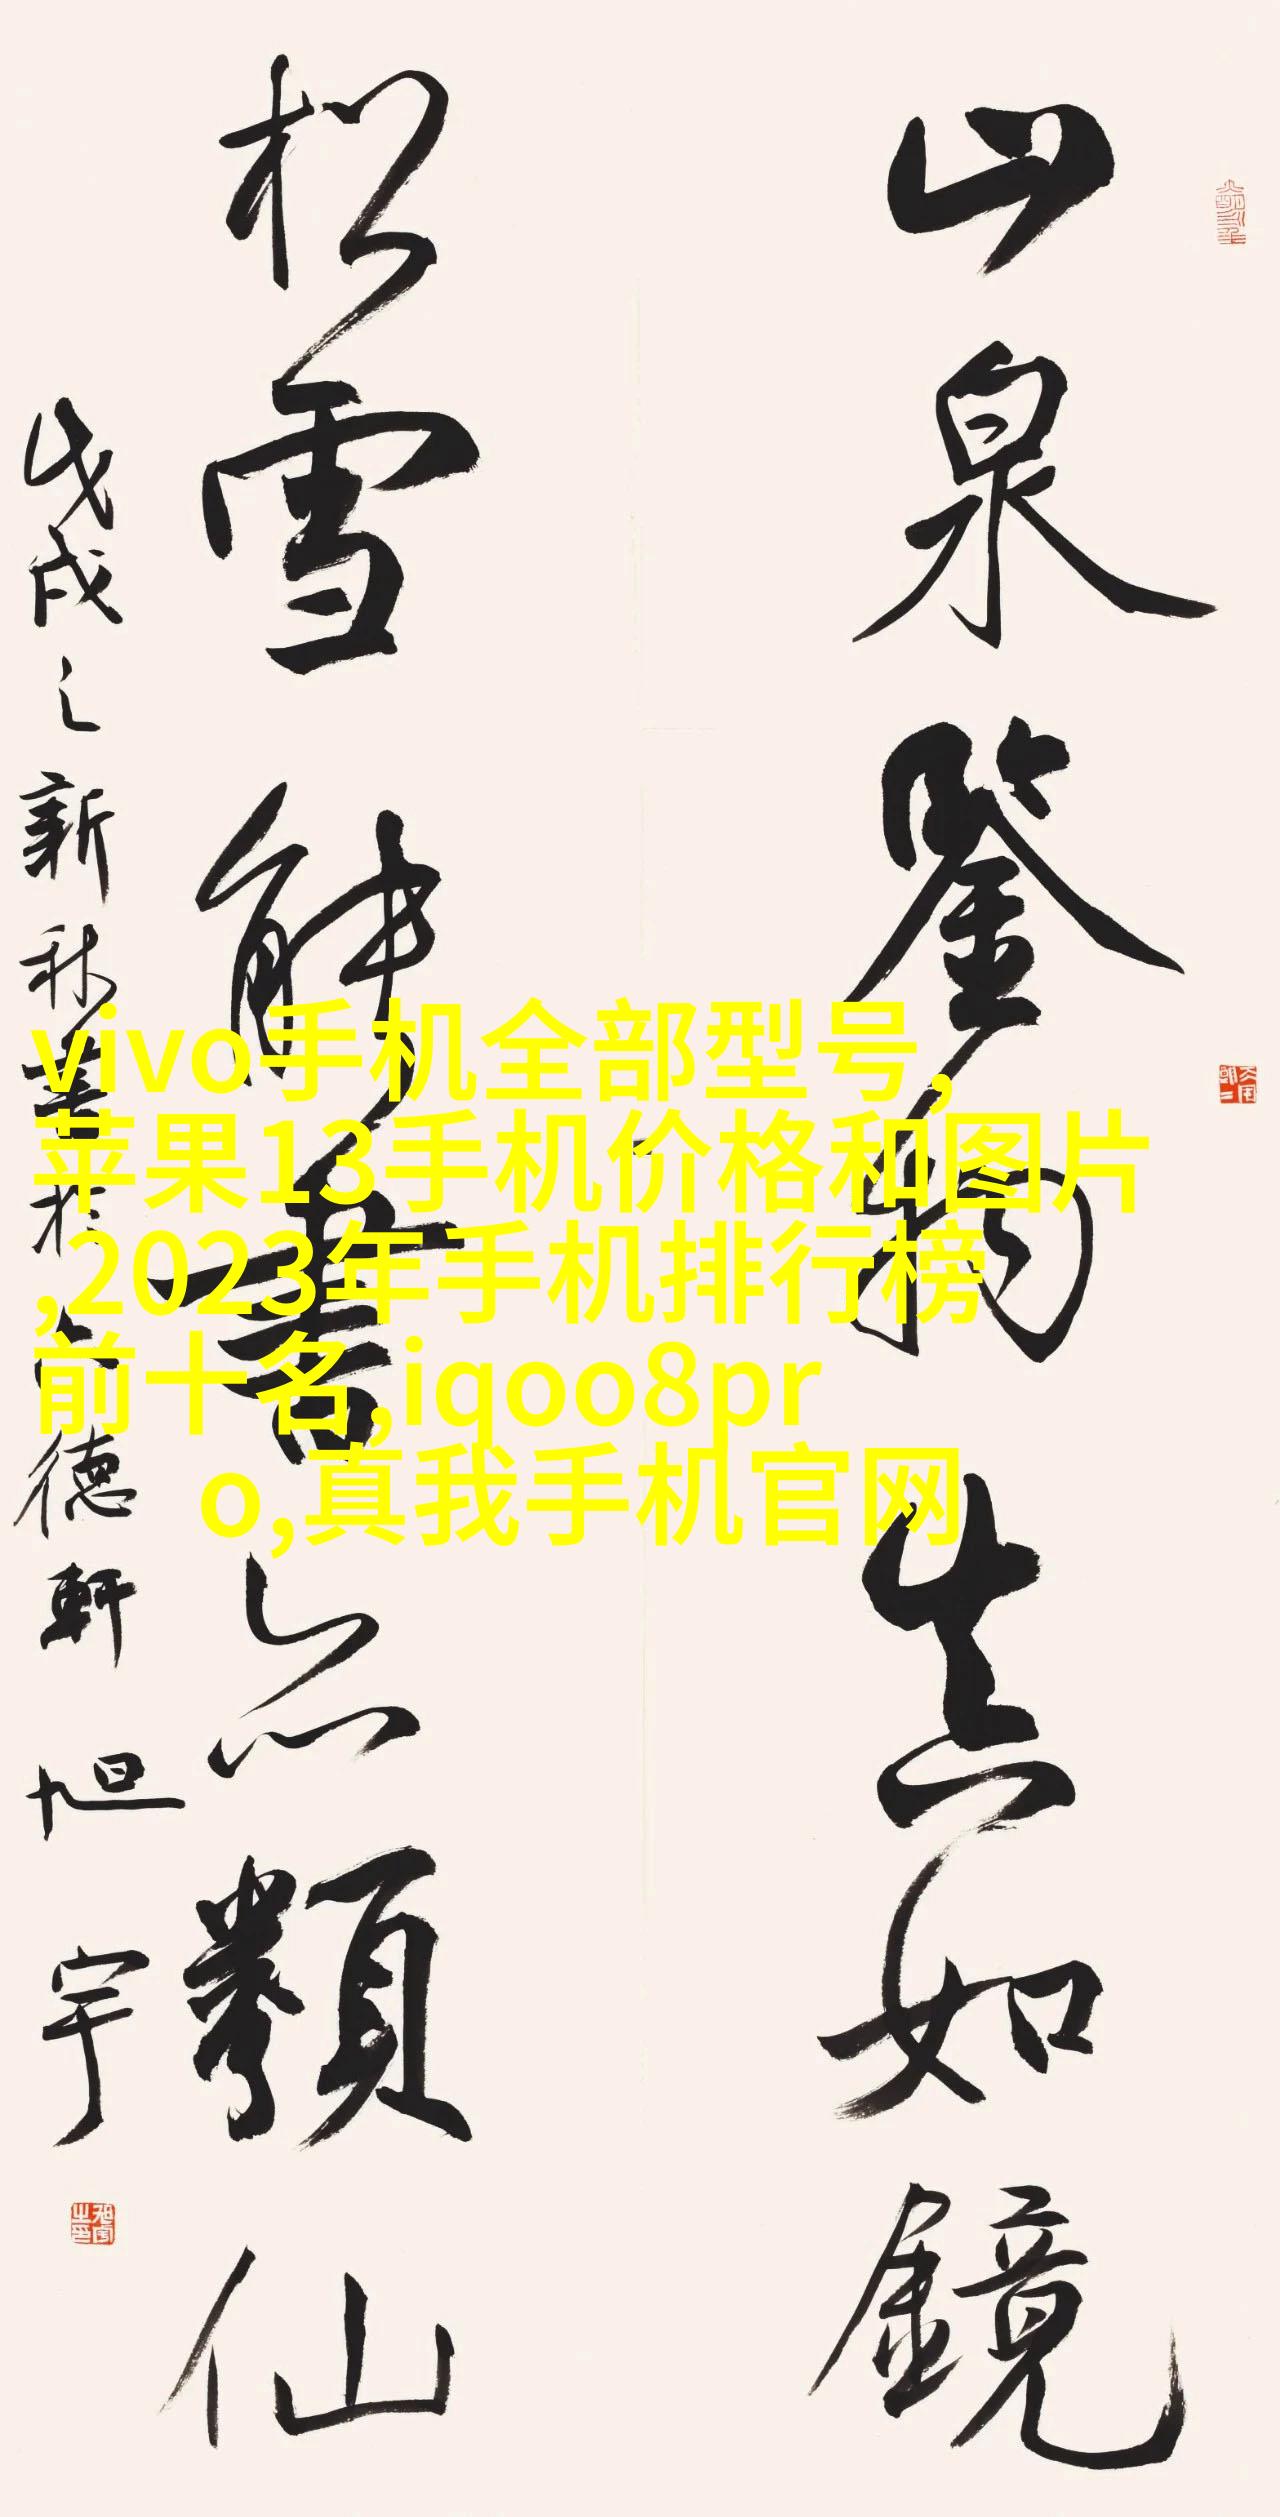 山泉鑒物真如鏡
松雪能書亦類仙
戊戌之新秋書於上德軒旭宇
vivo手机全部型号,
苹果13手机价格和图片
,2023年手机排行榜
前十名,iqoo8pr
o,真我手机官网